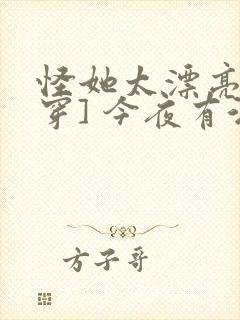 怪她太漂亮
穿]今夜有
方子哥